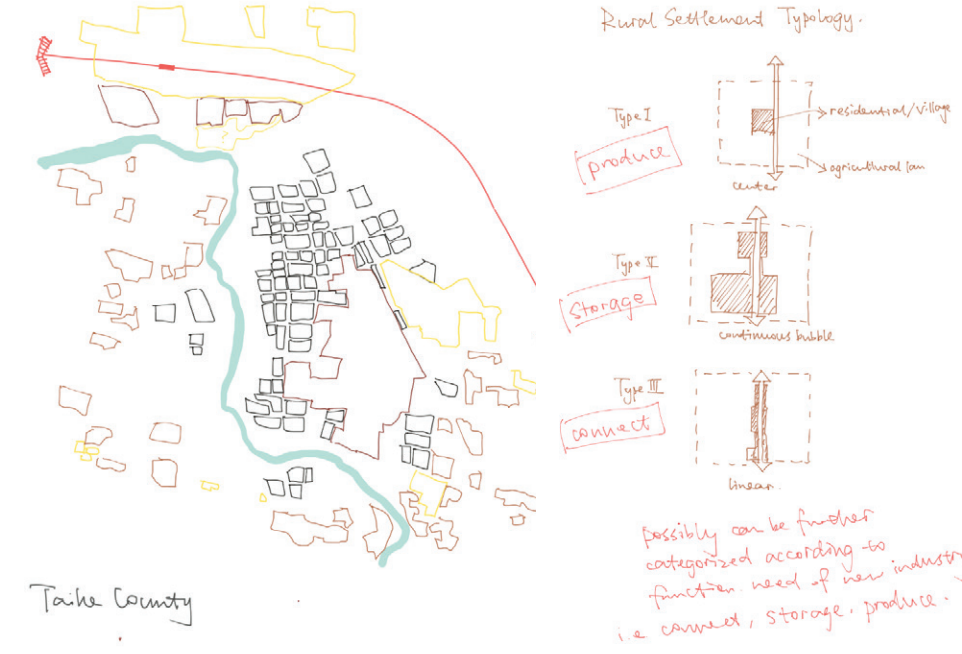 Rural Settlement Typology.
Type I
produce
residential/village
agricultural lan
center
Type II
storage
continuous bubble
Type III
connect
linear.
possibly can be further
categorized according to
function need of new industr
i.e connect, storage, produce.
Taihe County